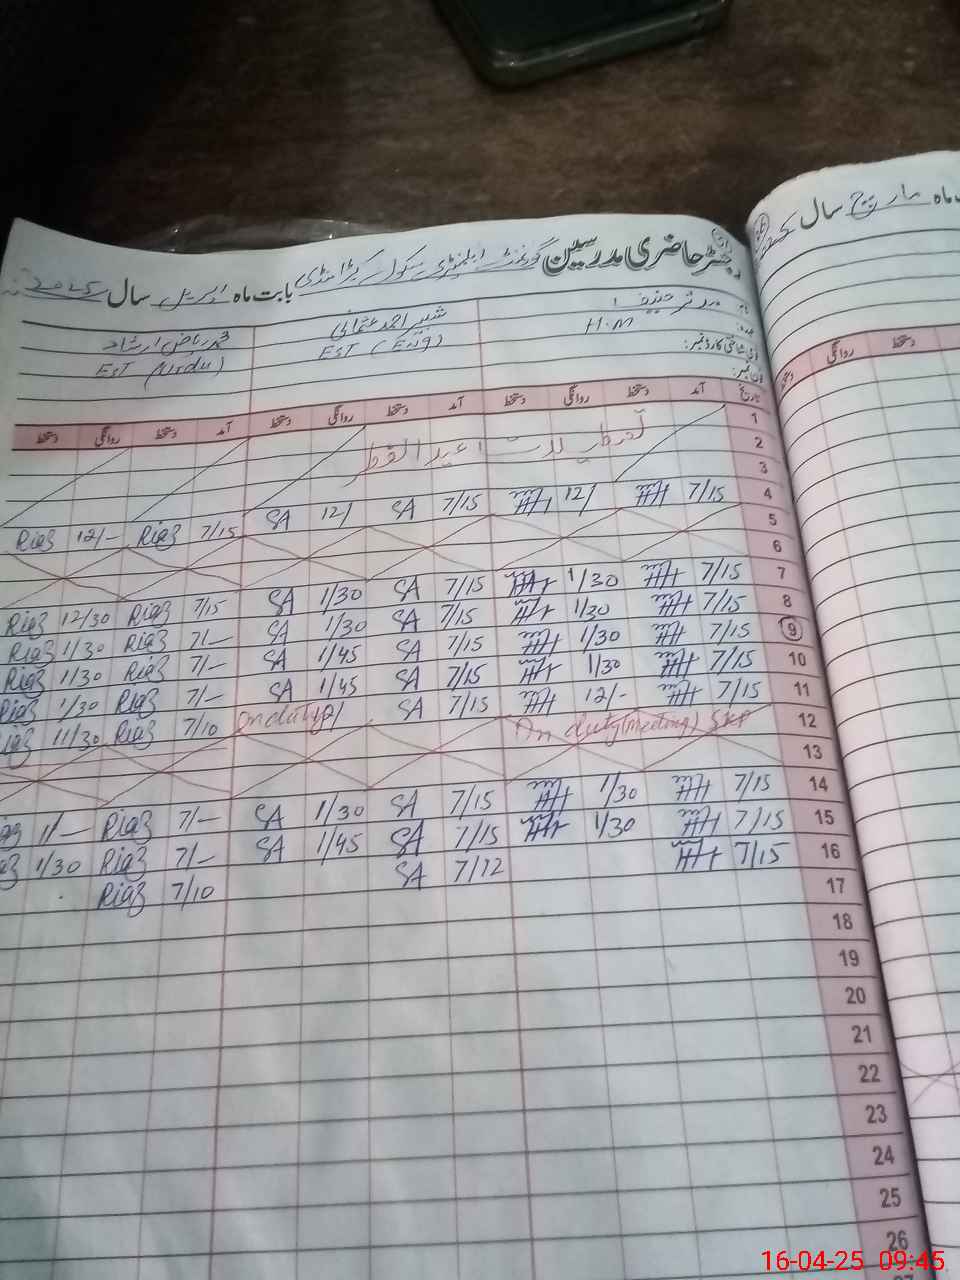 ماہ مارچ سال
رجسٹر حاضری مدرسین گورنمنٹ ایلیمنٹری سکول بابت ماہ اپریل سال 2025
نام: مدثر حنیف شبیر احمد عثمانی محمد ریاض ارشاد
عہدہ: H.M EST (Eng) EST (Urdu)
قومی شناختی کارڈ نمبر:
فون نمبر:
تاریخ آمد دستخط روانگی دستخط آمد دستخط روانگی دستخط آمد دستخط روانگی دستخط
تاریخ روانگی دستخط
1
2 تعطیلات عید الفطر
3
4 7/15 12/ 7/15 SA 12/ SA 7/15 Riaz 12/- Riaz
5
6
7 7/15 1/30 7/15 SA 1/30 SA 7/15 Riaz 12/30 Riaz
8 7/15 1/30 7/15 SA 1/30 SA 7/- Riaz 1/30 Riaz
9 7/15 1/30 7/15 SA 1/45 SA 7/- Riaz 1/30 Riaz
10 7/15 1/30 7/15 SA 1/45 SA 7/- Riaz 1/30 Riaz
11 7/15 12/- 7/15 SA On duty 7/10 Riaz 11/30 Riaz
12 On duty (meeting)
13
14 7/15 1/30 7/15 SA 1/30 SA 7/- Riaz 11/- Riaz
15 7/15 1/30 7/15 SA 1/45 SA 7/- Riaz 1/30 Riaz
16 7/15 7/12 SA 7/10 Riaz
17
18
19
20
21
22
23
24
25
26
16-04-25 09:45